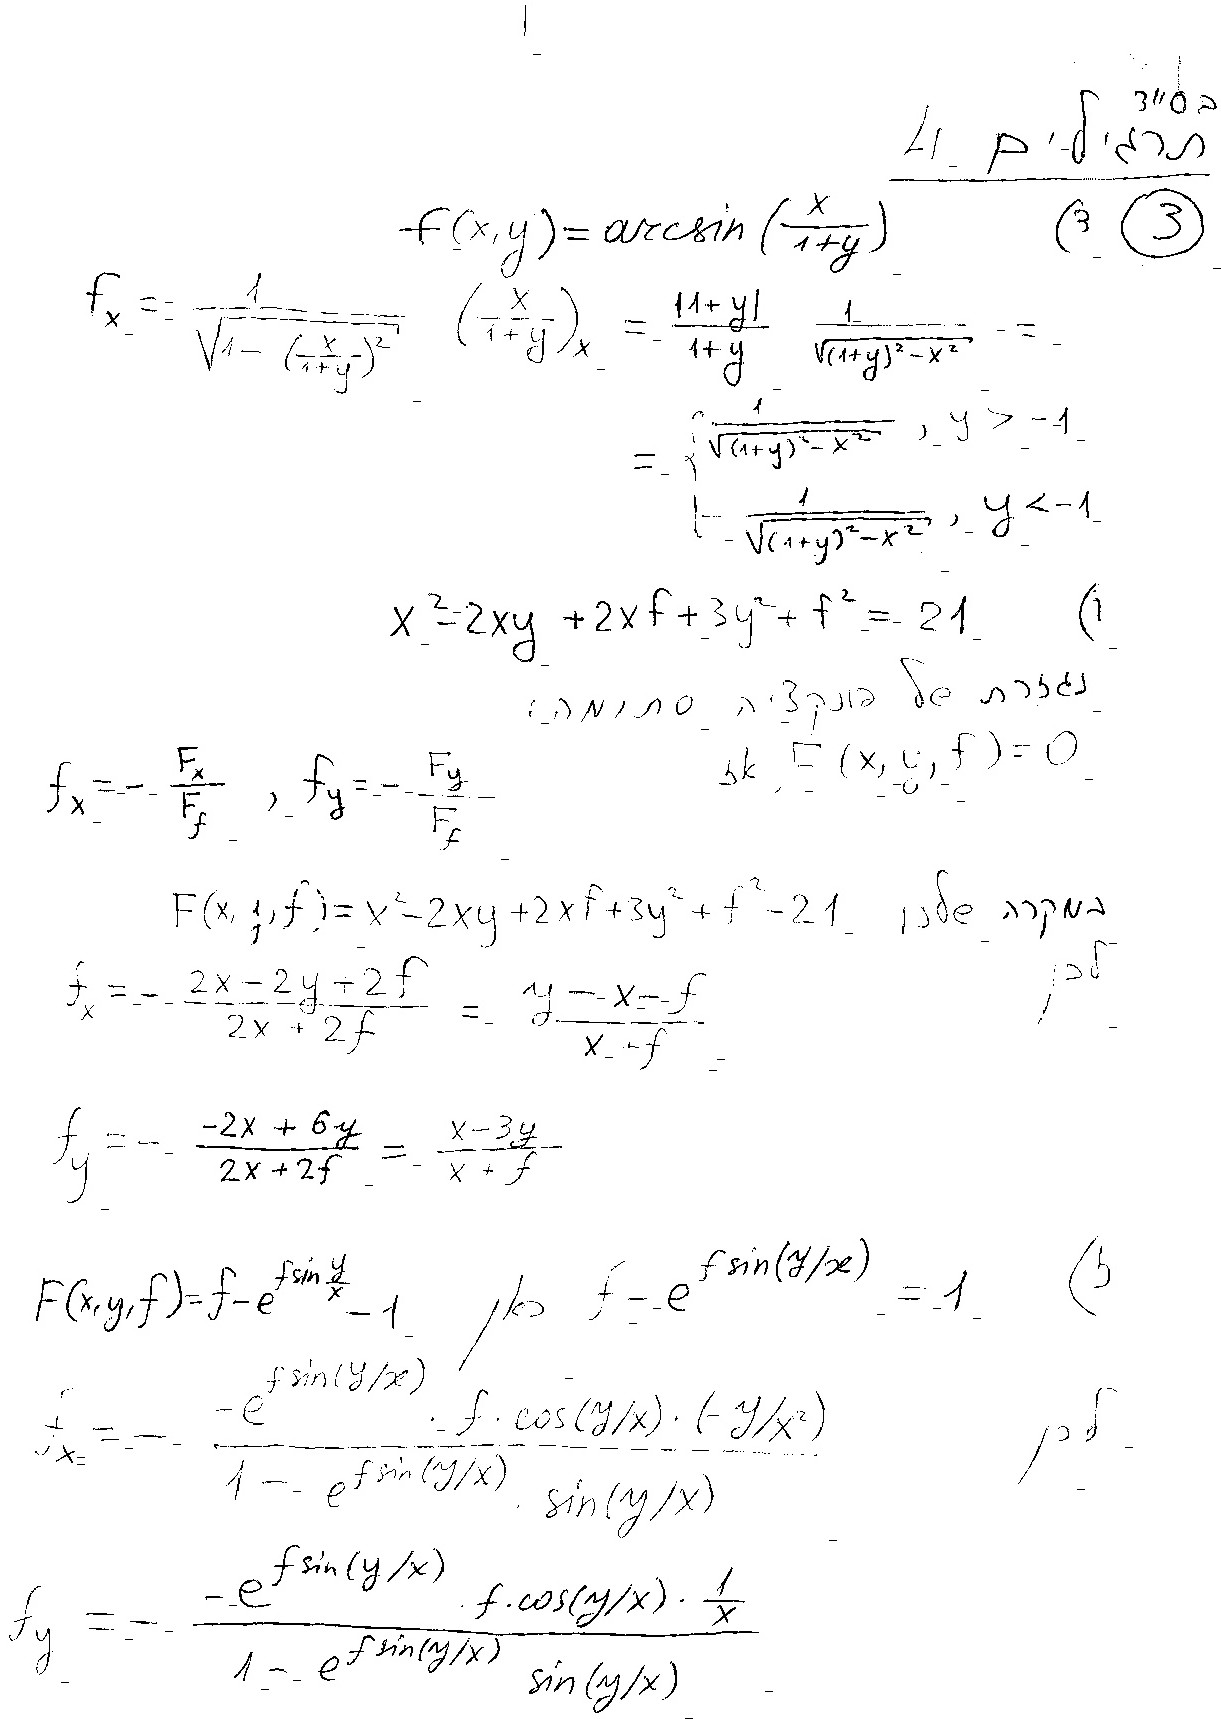 בס"ד
תרגילים 4
(3) ג) f(x,y) = arcsin(x/(1+y))
f_x = 1/√(1-(x/(1+y))²) (x/(1+y))_x = |1+y|/(1+y) 1/√((1+y)²-x²) =
= { 1/√((1+y)²-x²) , y > -1
- 1/√((1+y)²-x²) , y < -1
ו) x²-2xy+2xf+3y²+f² = 21
נגזרת של פונקציה סתומה:
F(x,y,f)=0 אז f_x = - F_x/F_f , f_y = - F_y/F_f
במקרה שלנו F(x,y,f) = x²-2xy+2xf+3y²+f²-21
לכן f_x = - (2x-2y+2f)/(2x+2f) = (y-x-f)/(x+f)
f_y = - (-2x+6y)/(2x+2f) = (x-3y)/(x+f)
ז) f - e^(f sin(y/x)) = 1 כאן F(x,y,f) = f-e^(f sin y/x) - 1
לכן f_x = - (-e^(f sin(y/x)) · f · cos(y/x) · (-y/x²))/(1 - e^(f sin(y/x)) · sin(y/x))
f_y = - (-e^(f sin(y/x)) · f · cos(y/x) · 1/x)/(1 - e^(f sin(y/x)) sin(y/x))